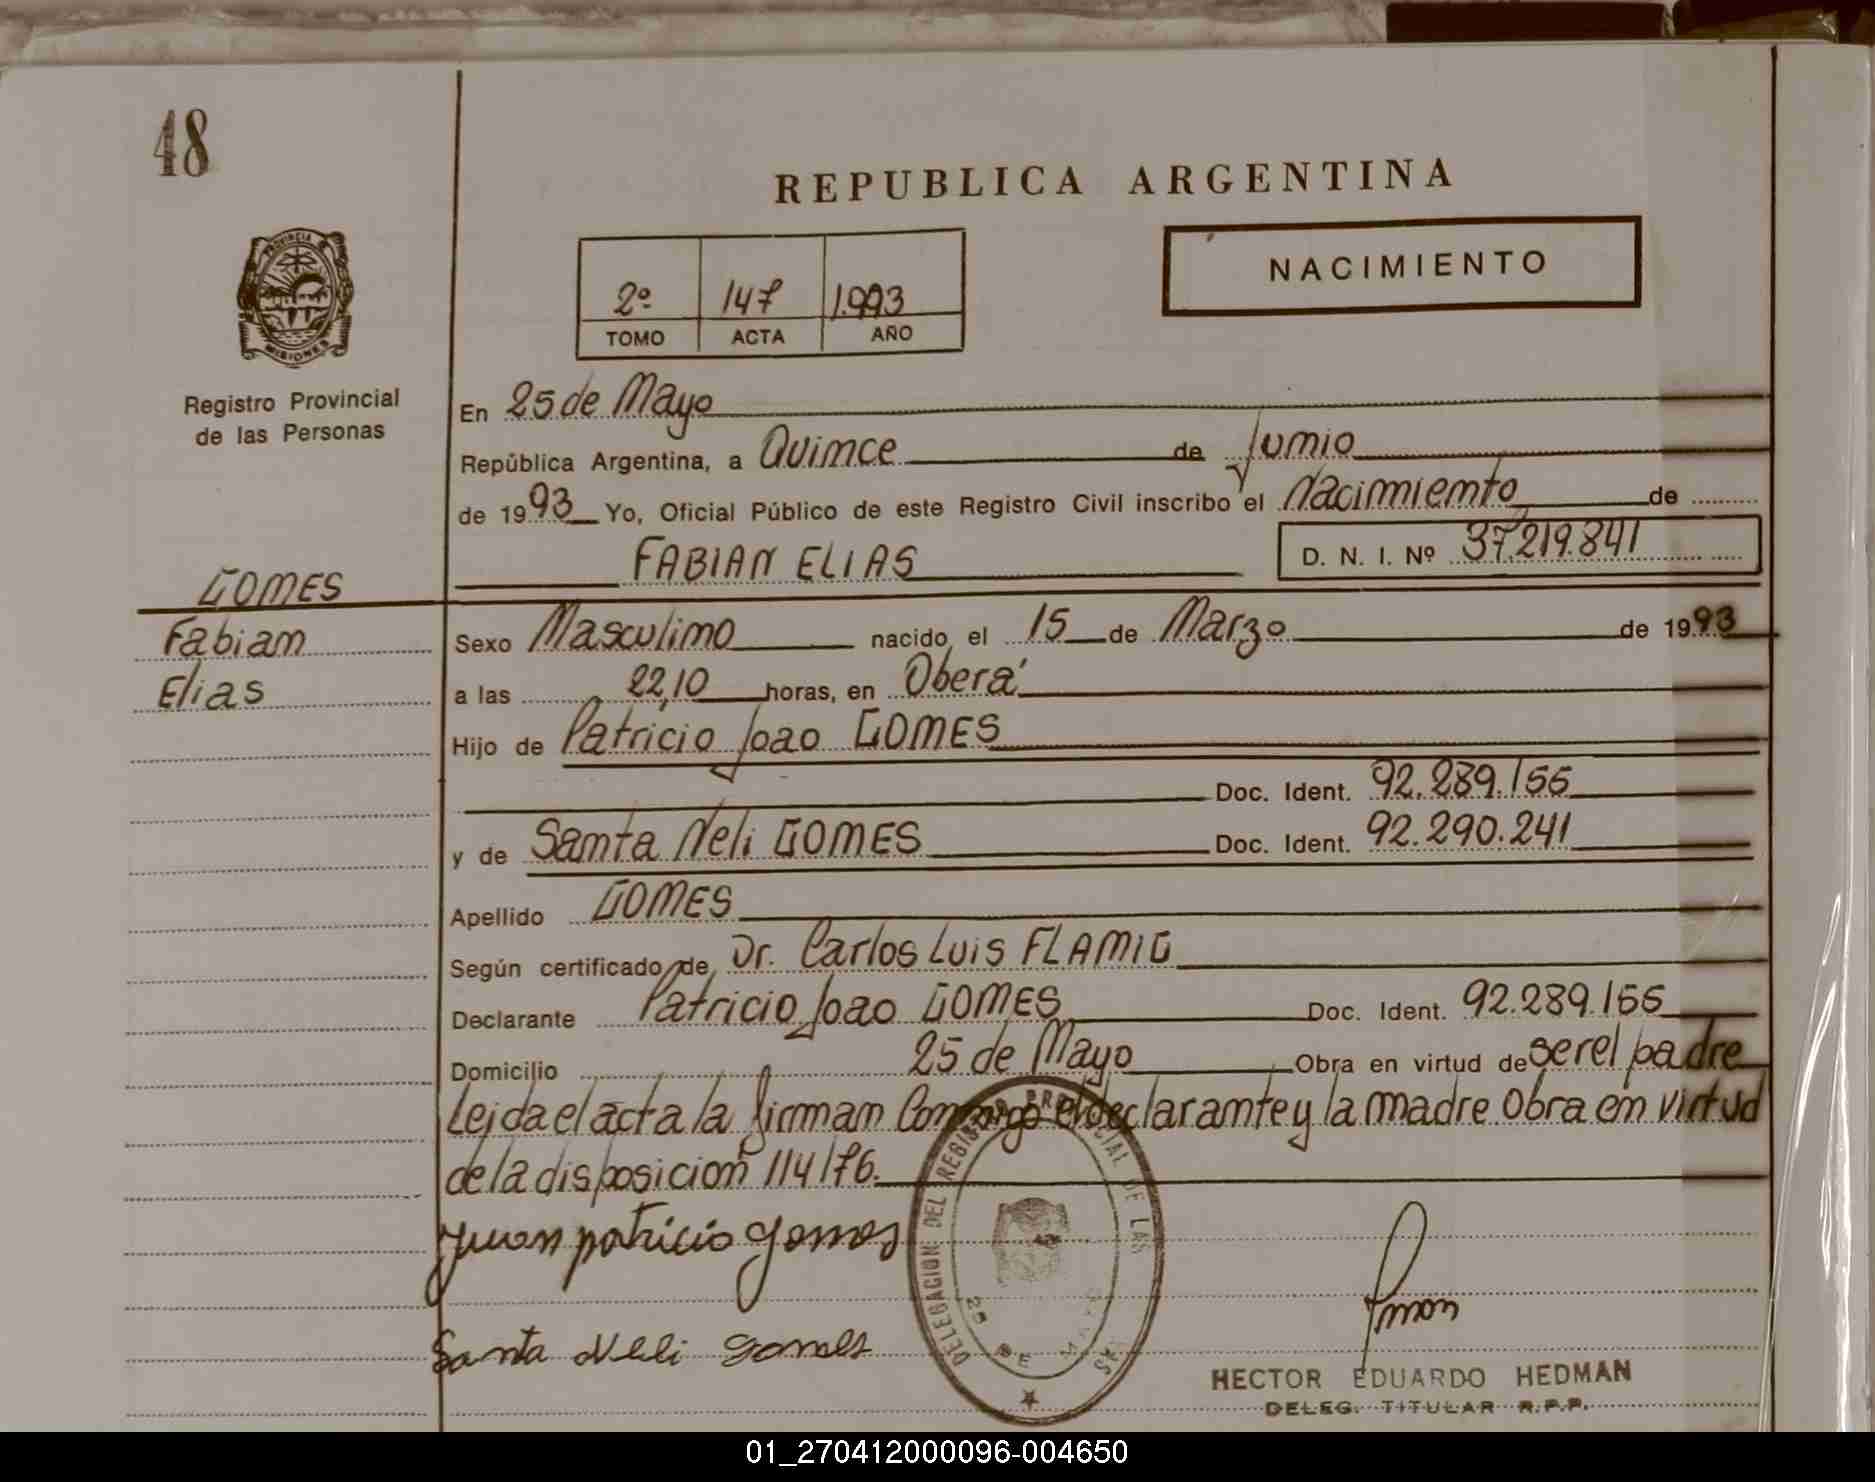 48
REPUBLICA ARGENTINA
NACIMIENTO
2º 147 1.993
TOMO ACTA AÑO
PROVINCIA D
MISIONES
Registro Provincial
de las Personas
En 25 de Mayo
República Argentina, a Quince de Junio
de 1993 Yo, Oficial Público de este Registro Civil inscribo el Nacimiento de
FABIAN ELIAS D. N. I. Nº 37.219.841
GOMES
Fabian
Elias
Sexo Masculino nacido el 15 de Marzo de 1993
a las 22,10 horas, en Oberá
Hijo de Patricio Joao GOMES
Doc. Ident. 92.289.155
y de Santa Neli GOMES Doc. Ident. 92.290.241
Apellido GOMES
Según certificado de Dr. Carlos Luis FLAMIG
Declarante Patricio Joao GOMES Doc. Ident. 92.289.155
Domicilio 25 de Mayo Obra en virtud de ser el padre
Leida el acta la firman Conmigo el declarante y la madre Obra en virtud
de la disposicion 114/76.
Juan patricio gomes
Santa Neli Gomes
DELEGACION DEL REGISTRO PROVINCIAL DE LAS
25 DE MAYO
HECTOR EDUARDO HEDMAN
DELEG. TITULAR R.P.P.
01_270412000096-004650